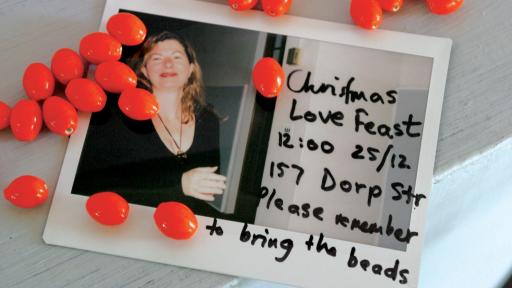 Christmas
Love Feast
12:00 25/12
157 Dorp Str
please remember
to bring the beads